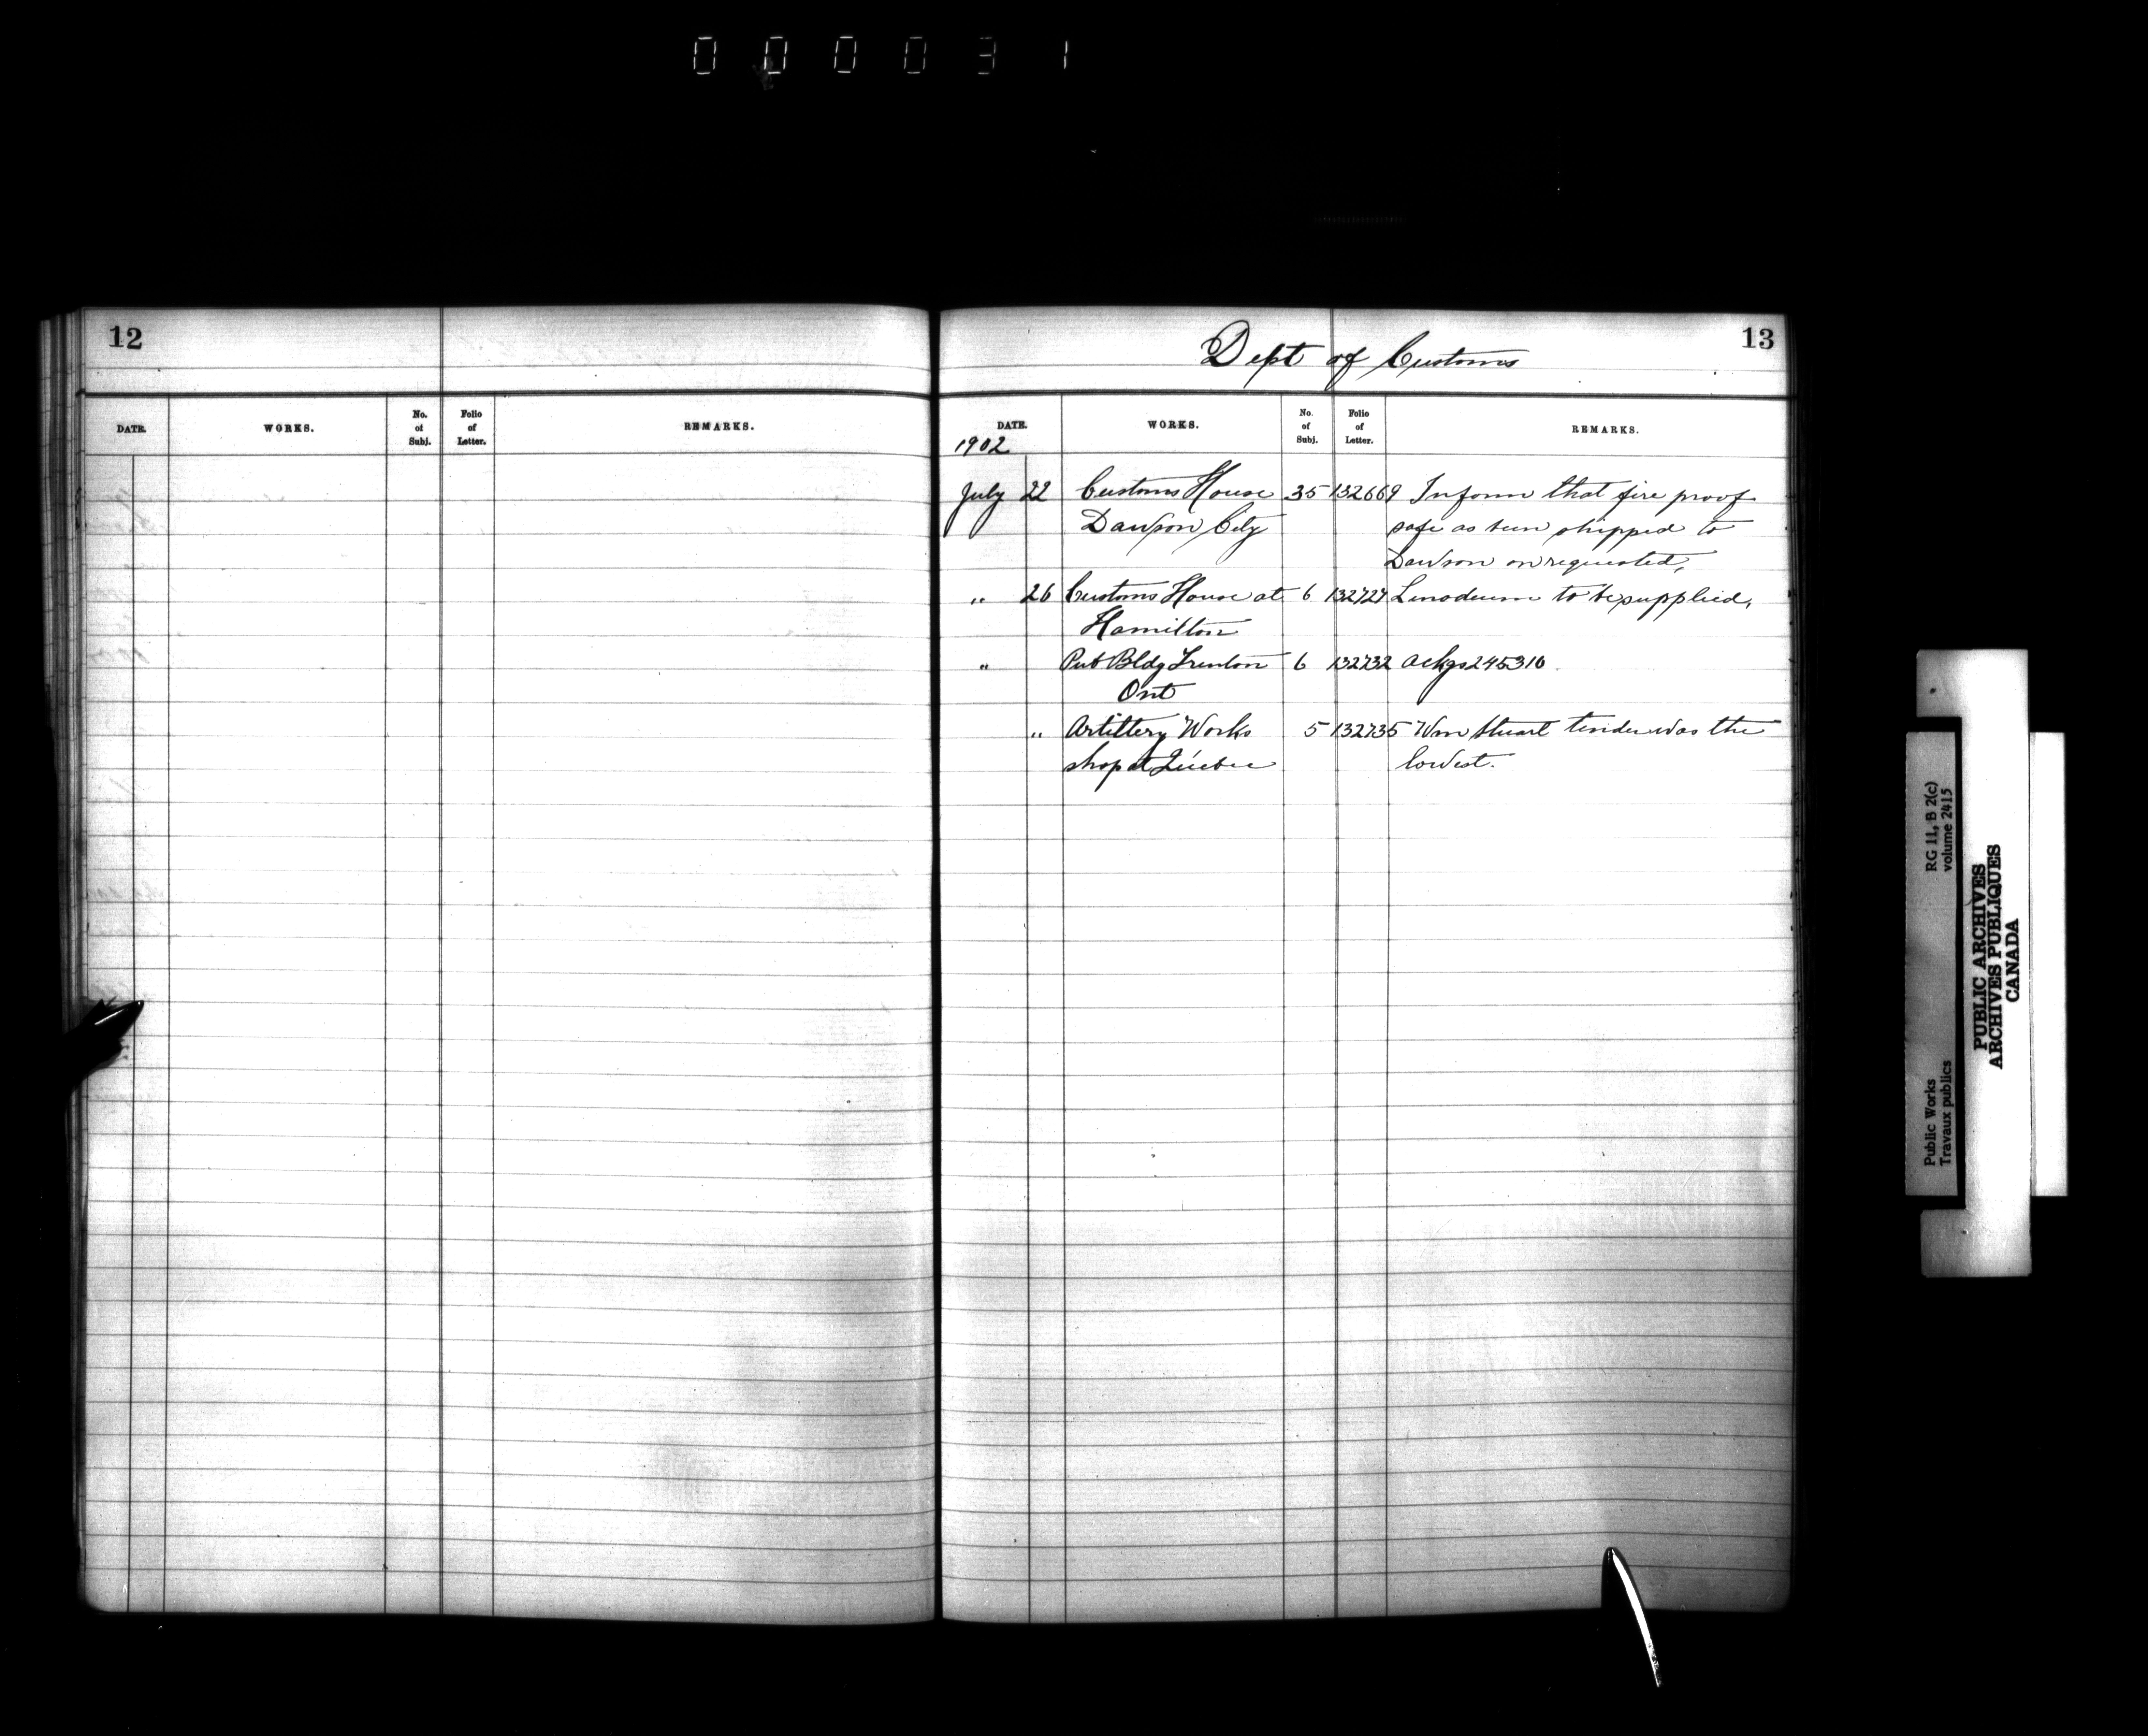 0 0 0 0 3 1
12
DATE. WORKS. No. of Subj. Folio of Letter. REMARKS.
13
Dept of Customs
DATE. WORKS. No. of Subj. Folio of Letter. REMARKS.
1902
July 22 Customs House 35 132669 Inform that fire proof
Dawson City safe as been shipped to
Dawson on requested,
" 26 Customs House at 6 132727 Linoleum to be supplied,
Hamilton
" Pub Bldg Trenton 6 132732 ackgs 245310
Ont
" Artillery Works 5 132735 Wm Stuart tender was the
shop at Quebec lowest.
RG 11, B 2(c)
volume 2415
Public Works
Travaux publics
PUBLIC ARCHIVES
ARCHIVES PUBLIQUES
CANADA